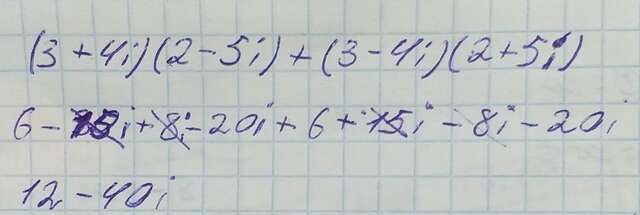 (3+4i)(2-5i)+(3-4i)(2+5i)
6-15i+8i-20i+6+15i-8i-20i
12-40i